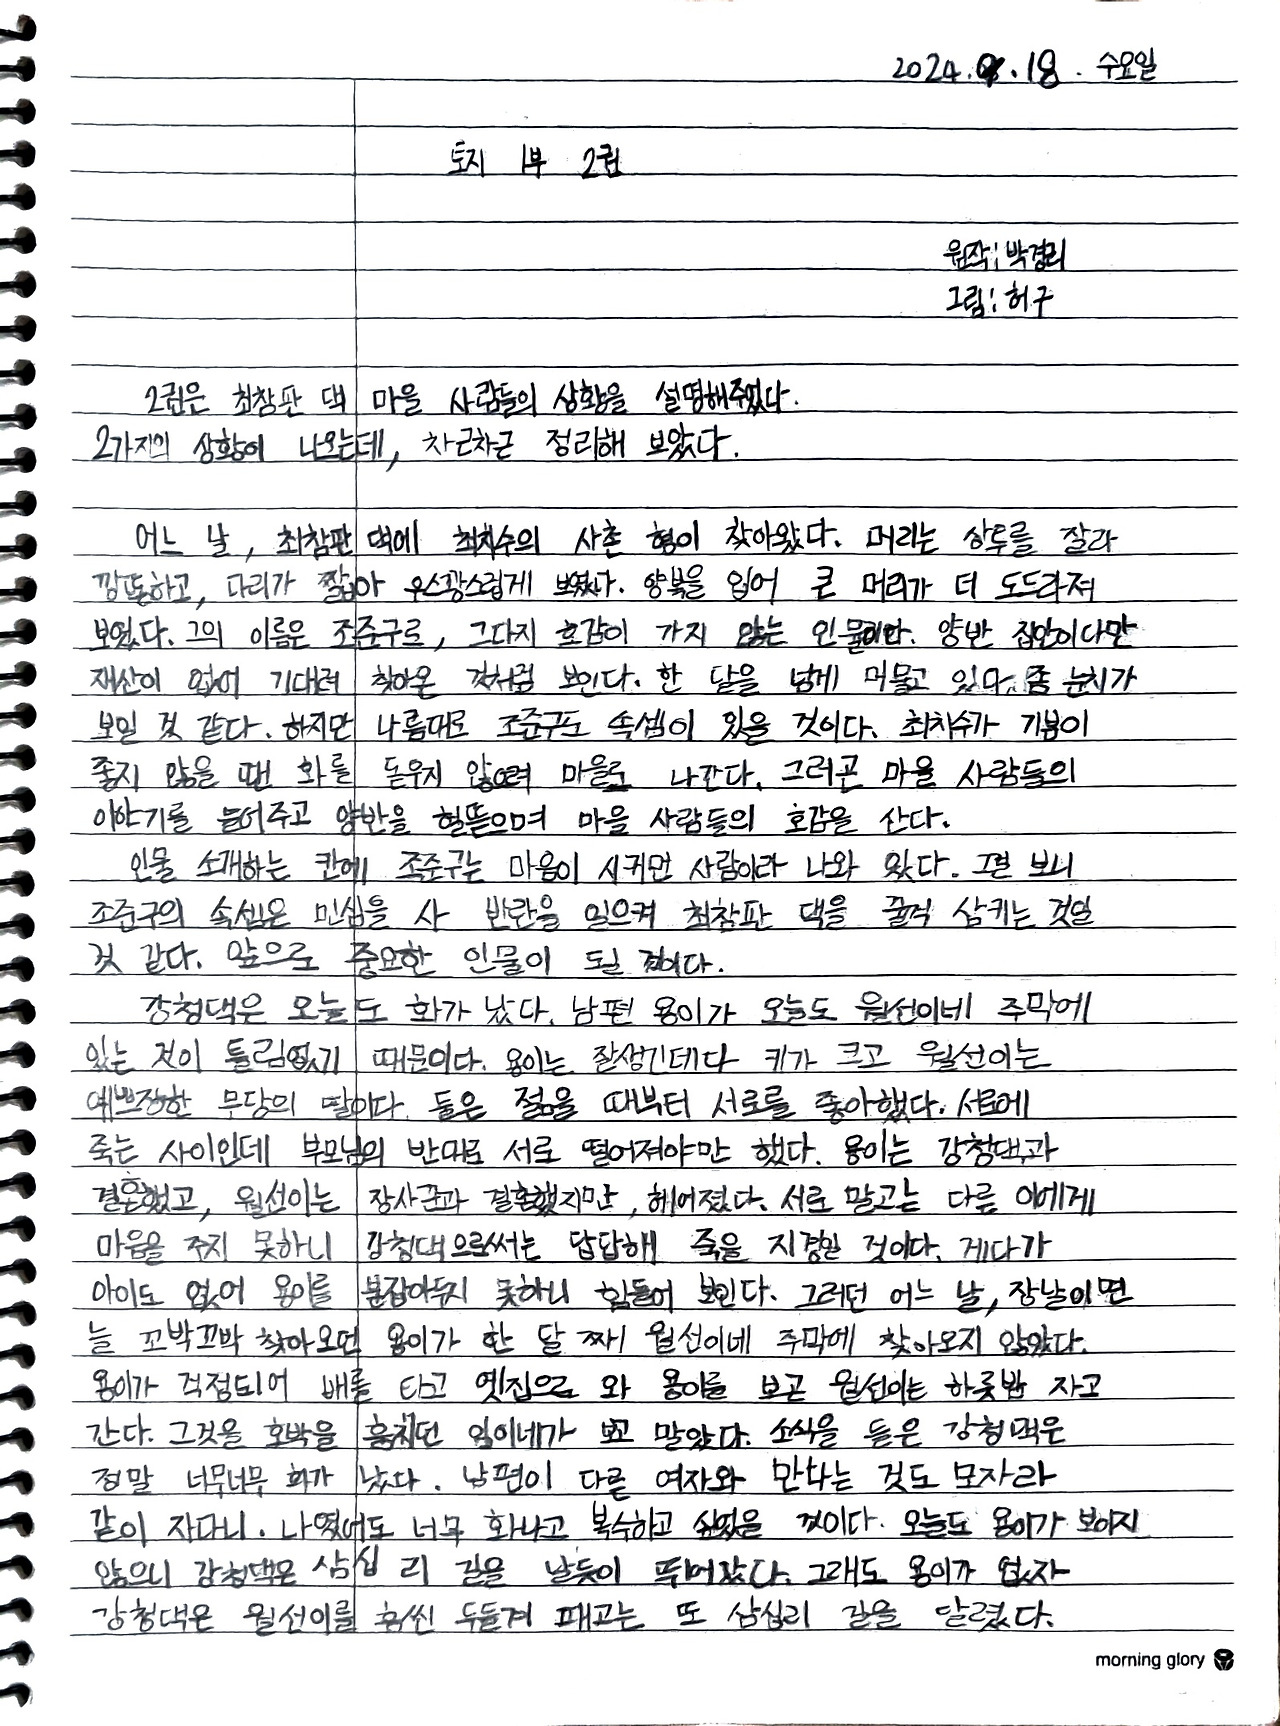 2024.9.18. 수요일
토지 1부 2권
원작: 박경리
그림: 허구
2권은 최참판 댁 마을 사람들의 상황을 설명해주었다.
2가지의 상황이 나오는데, 차근차근 정리해 보았다.
어느 날, 최참판 댁에 최치수의 사촌 형이 찾아왔다. 머리는 상투를 잘라
깡똥하고, 다리가 짧아 우스꽝스럽게 보였다. 양복을 입어 큰 머리가 더 도드라져
보였다. 그의 이름은 조준구로, 그다지 호감이 가지 않는 인물이다. 양반 집안이다만
재산이 없어 기대려 찾아온 것처럼 보인다. 한 달을 넘게 머물고 있다. 좀 눈치가
보일 것 같다. 하지만 나름대로 조준구도 속셈이 있을 것이다. 최치수가 기분이
좋지 않을 땐 화를 돋우지 않으려 마을로 나간다. 그러곤 마을 사람들의
이야기를 들어주고 양반을 헐뜯으며 마을 사람들의 호감을 산다.
인물 소개하는 칸에 조준구는 마음이 시커먼 사람이라 나와 있다. 그런 보니
조준구의 속셈은 민심을 사 반란을 일으켜 최참판 댁을 꿀꺽 삼키는 것일
것 같다. 앞으로 중요한 인물이 될 것이다.
강청댁은 오늘도 화가 났다. 남편 용이가 오늘도 월선이네 주막에
있는 것이 틀림없기 때문이다. 용이는 잘생긴데다 키가 크고 월선이는
예쁘장한 무당의 딸이다. 둘은 젊을 때부터 서로를 좋아했다. 서로에
죽는 사이인데 부모님의 반대로 서로 떨어져야만 했다. 용이는 강청댁과
결혼했고, 월선이는 장사꾼과 결혼했지만, 헤어졌다. 서로 말고는 다른 이에게
마음을 주지 못하니 강청댁으로써는 답답해 죽을 지경일 것이다. 게다가
아이도 없어 용이를 붙잡아두지 못하니 힘들어 보인다. 그러던 어느 날, 장날이면
늘 꼬박꼬박 찾아오던 용이가 한 달 째 월선이네 주막에 찾아오지 않았다.
용이가 걱정되어 배를 타고 옛집으로 와 용이를 보곤 월선이는 하룻밤 자고
간다. 그것을 호박을 훔치던 임이네가 보고 말았다. 소식을 들은 강청댁은
정말 너무너무 화가 났다. 남편이 다른 여자와 만나는 것도 모자라
같이 자다니. 나였어도 너무 화나고 복수하고 싶었을 것이다. 오늘도 용이가 보이지
않으니 강청댁은 삼십 리 길을 날듯이 뛰어갔다. 그래도 용이가 없자
강청댁은 월선이를 흠씬 두들겨 패고는 또 삼십리 길을 달렸다.
morning glory